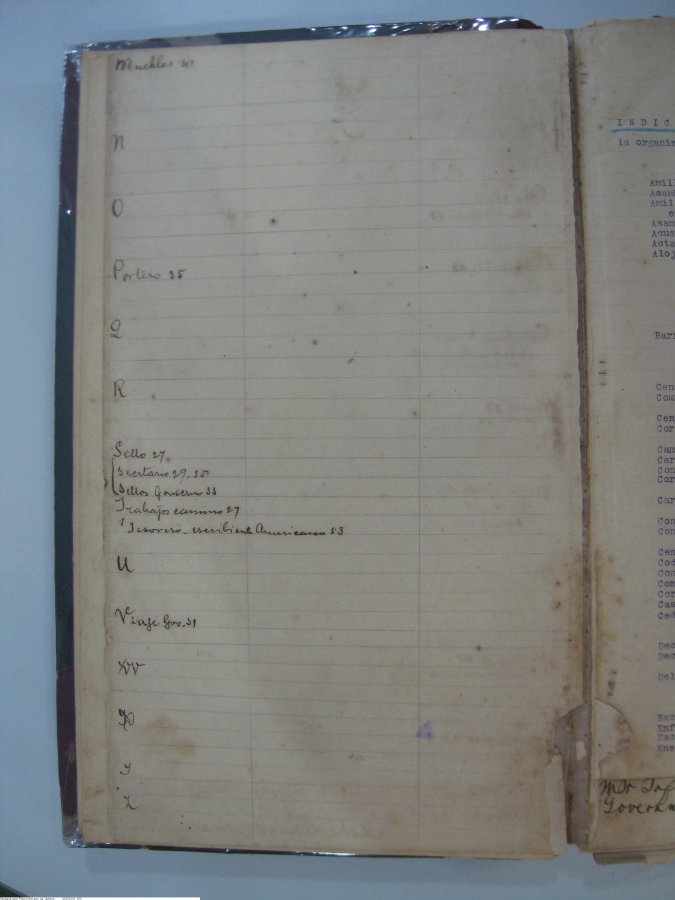 Muebles 41
N
O
Portero 35
Q
R
Sello 27
Secretario 29, 35
Sellos Gobierno 33
Trabajos camino 27
Tesorero - escribiente Americano 53
U
Viaje Gov. 31
W
X
Y
Z
INDIC
la organiz
Amill
Asam
Amil
e
Asam
Acue
Acta
Aloj
Barr
Cen
Com
Cen
Cor
Cam
Car
Con
Cor
Car
Con
Con
Cen
Cod
Con
Com
Cor
Cas
Ced
Dec
Dec
Del
Esc
Enf
Esc
Ens
Mr Taf
Govern